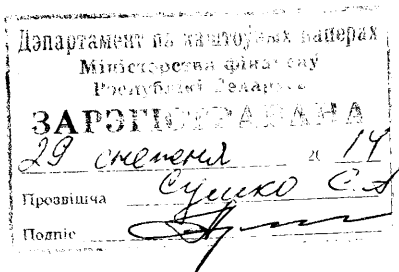 Дэпартамент па каштоўных паперах
Міністэрства фінансаў
Рэспублікі Беларусь
ЗАРЭГІСТРАВАНА
29 снежня 20 14
Прозвішча Сушко С.А
Подпіс